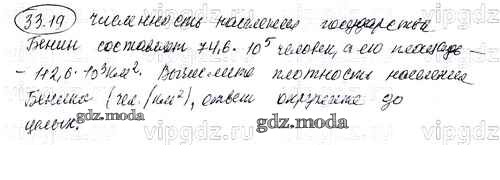 33.19 численность населения государства
Бенин составляет 74,6 · 10⁵ человек, а его площадь –
– 112,6 · 10³ км². Вычислите плотность населения
Бенина (чел./км²), ответ округлите до
целых.
gdz.moda
gdz.moda
vipgdz.ru
vipgdz.ru
vipgdz.ru